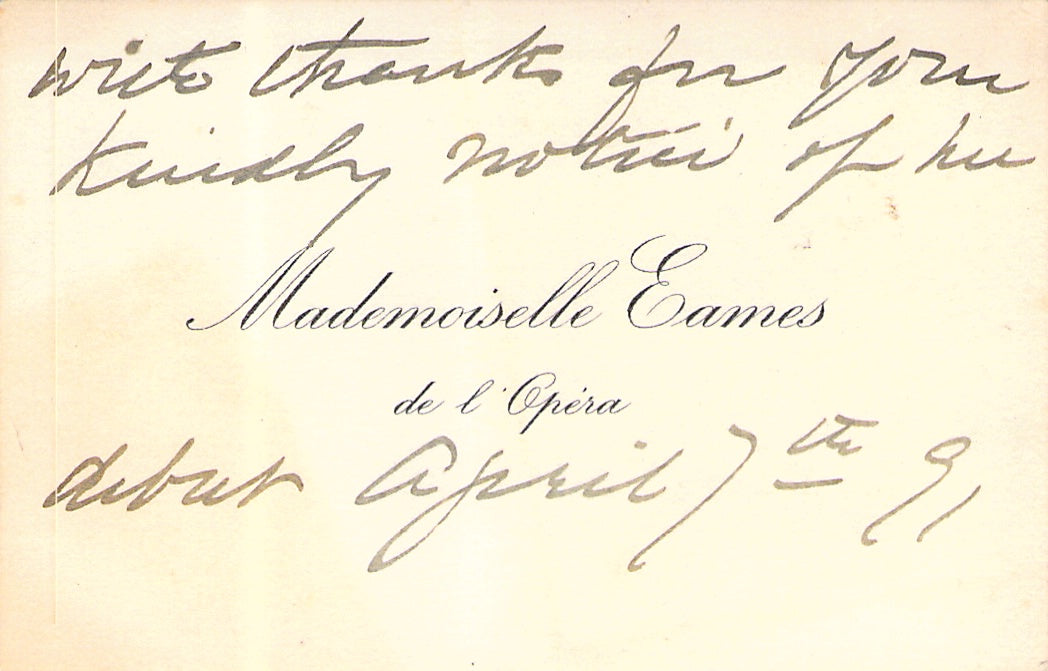 with thanks for your
kindly notice of her
Mademoiselle Eames
de l'Opéra
debut April 7th 91